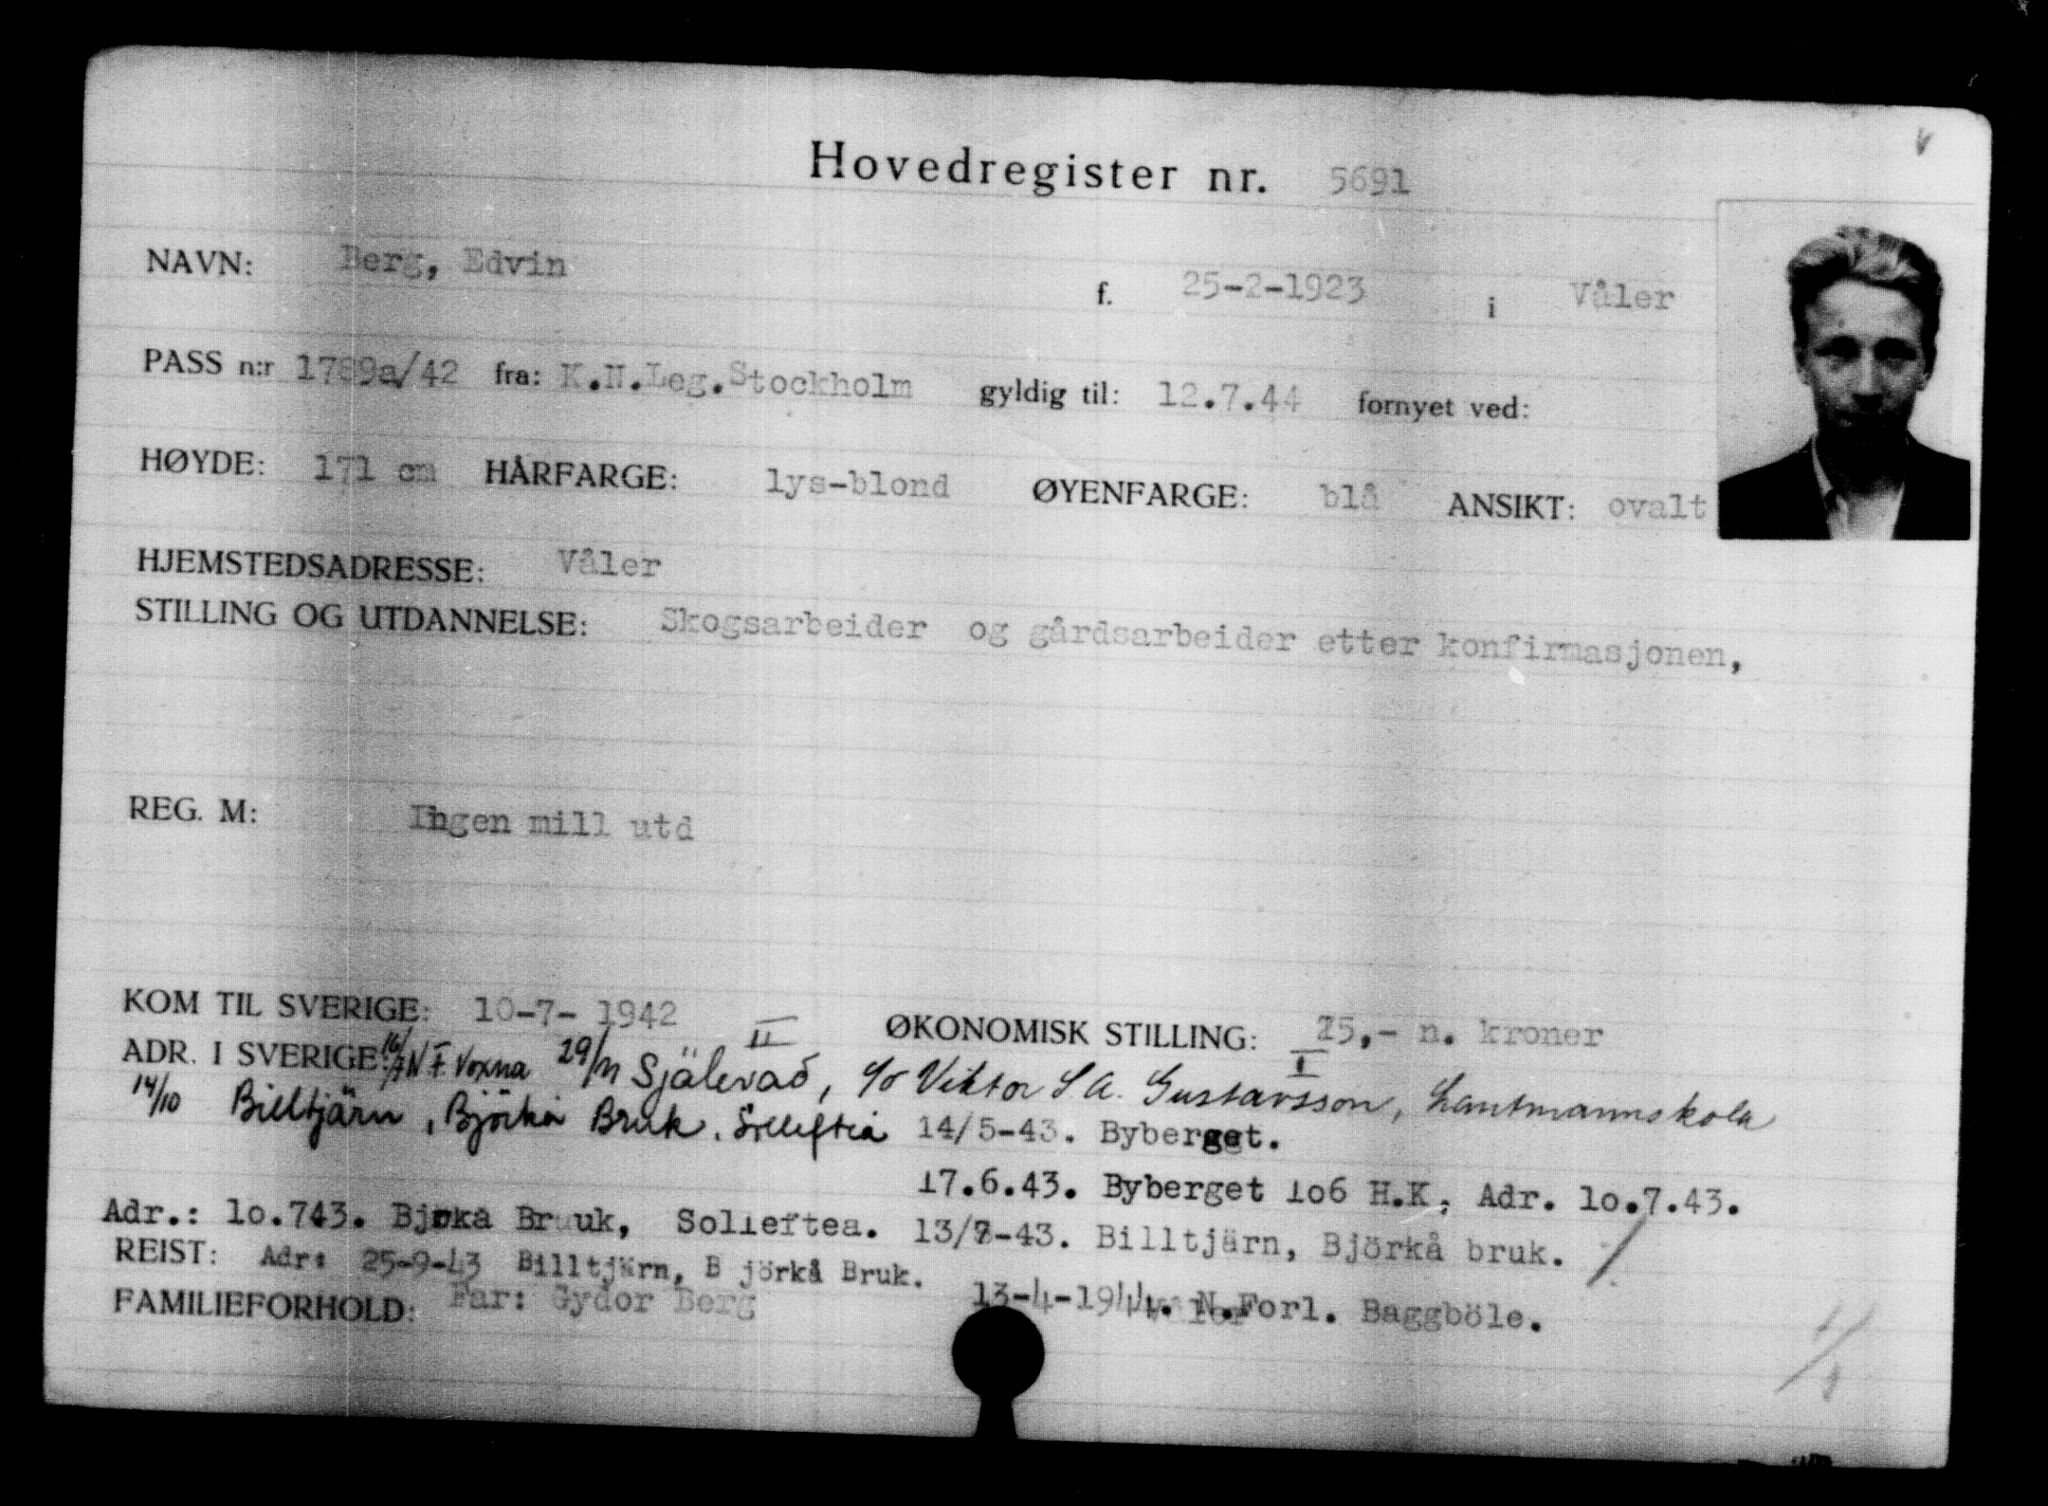 Hovedregister nr. 5691
NAVN: Berg, Edvin f. 25-2-1923 i Våler
PASS n:r 1789a/42 fra: K.N.Leg.Stockholm gyldig til: 12.7.44 fornyet ved:
HØYDE: 171 cm HÅRFARGE: lys-blond ØYENFARGE: blå ANSIKT: ovalt
HJEMSTEDSADRESSE: Våler
STILLING OG UTDANNELSE: Skogsarbeider og gårdsarbeider etter konfirmasjonen,
REG. M: Ingen mill utd
KOM TIL SVERIGE: 10-7- 1942 II ØKONOMISK STILLING: 15,- n. kroner
I
ADR. I SVERIGE: N F. Voxna 29/11 Själevad, c/o Viktor S. A. Gustavsson, Lantmannskola
14/10 Billtjärn, Björkå Bruk. Solleftiå 14/5-43. Byberget.
17.6.43. Byberget 1o6 H.K, Adr. 1o.7.43.
Adr.: 1o.743. Bjrka Bruuk, Solleftea. 13/8-43. Billtjärn, Björkå bruk.
REIST: Adr: 25-9-43 Billtjärn, B jörkå Bruk.
FAMILIEFORHOLD: Far: Gydor Berg 13-4-1944. N.Forl. Baggböle.